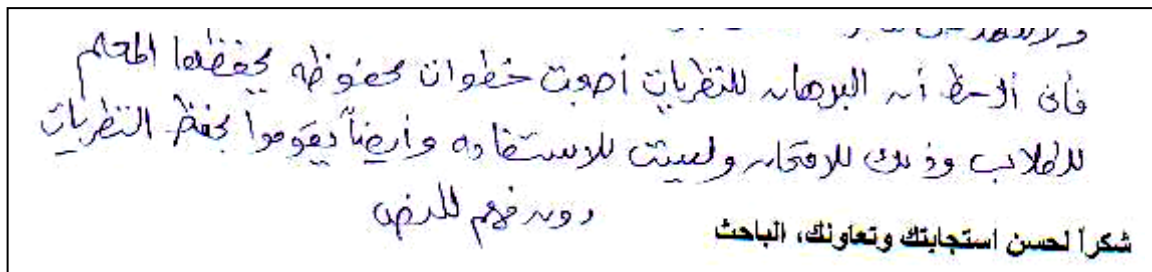 فأنى ألاحظ أن البرهان للنظريات أصبحت خطوات محفوظه يحفظها المعلم
للطلاب وذلك للامتحان وليست للاستفاده وأيضاً يقوموا بحفظ النظريات
دون فهم للنص
شكراً لحسن استجابتك وتعاونك، الباحث